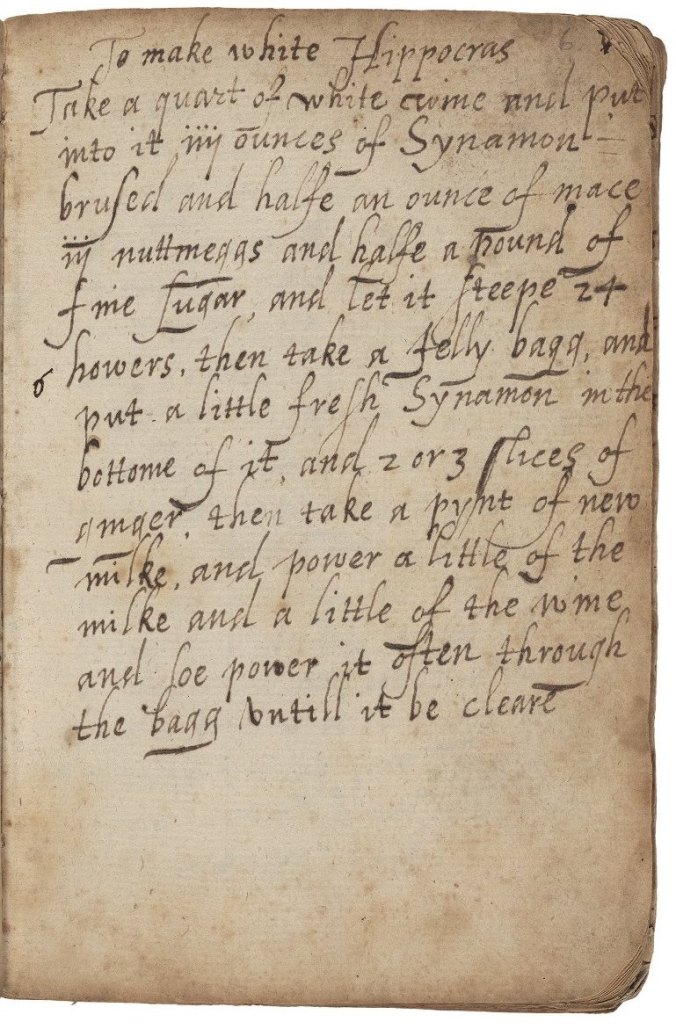 To make white Hippocras
6
Take a quart of white wine and put
into it iiij ounces of Synamon
brused and halfe an ounce of mace
iij nuttmeggs and halfe a pound of
fine sugar, and let it steepe 24
howers, then take a Jelly bagg, and
6
put a little fresh Synamon in the
bottome of it, and 2 or 3 slices of
ginger, then take a pynt of new
milke, and power a little of the
milke and a little of the wine
and soe power it often through
the bagg vntill it be cleare